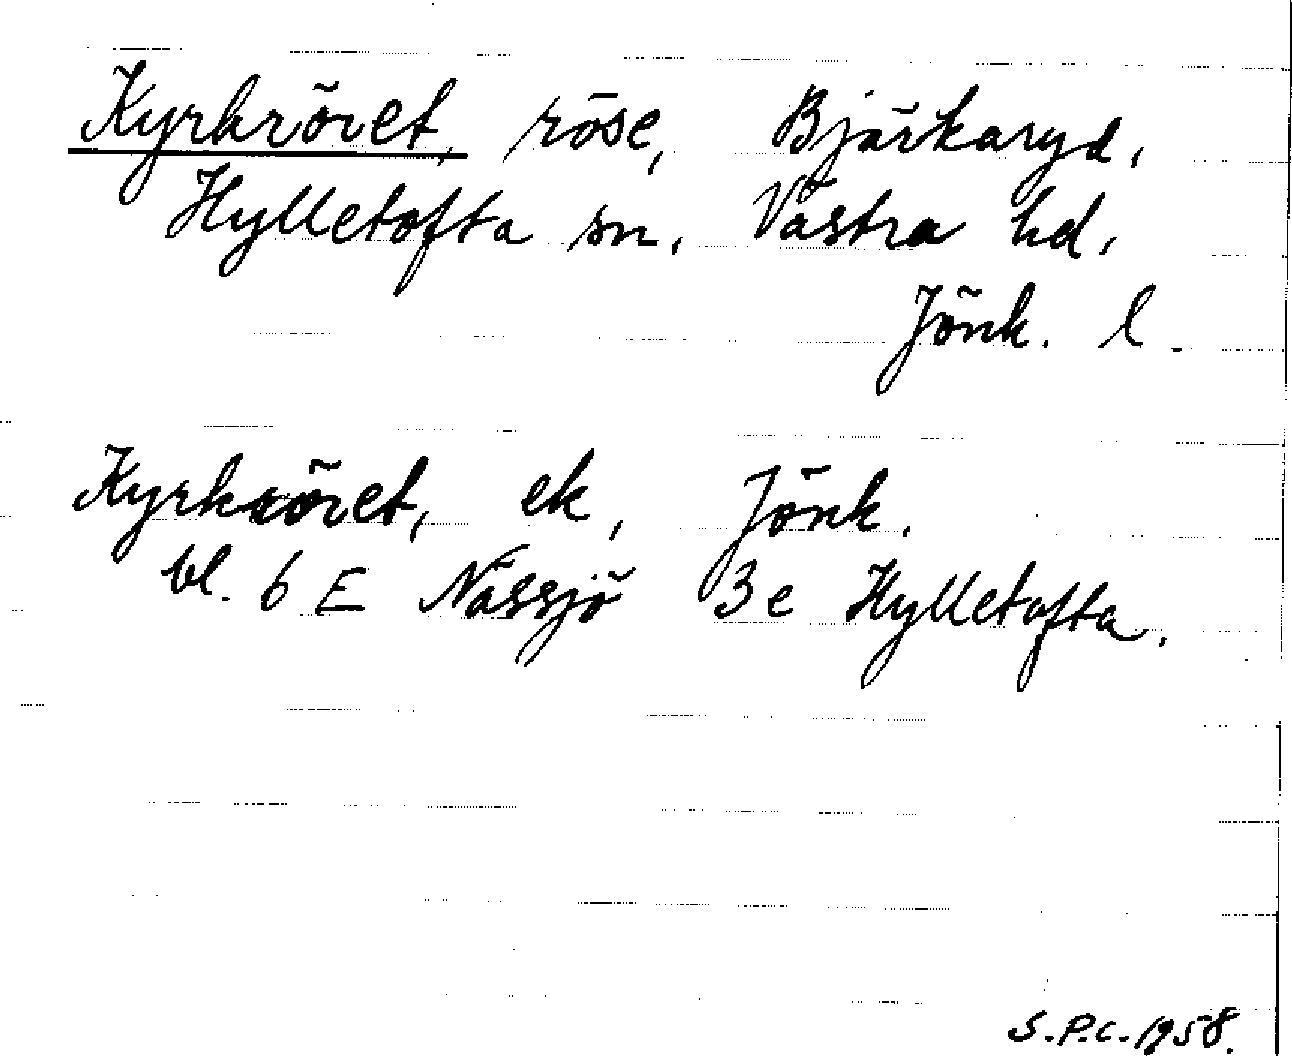 Kyrkröret, röse, Bjärkaryd,
Hylletofta sn, Västra hd,
Jönk. l.
Kyrkröret, ek, Jönk.
bl. 6 E Nässjö 3e Hylletofta.
S.P.C. 1958.